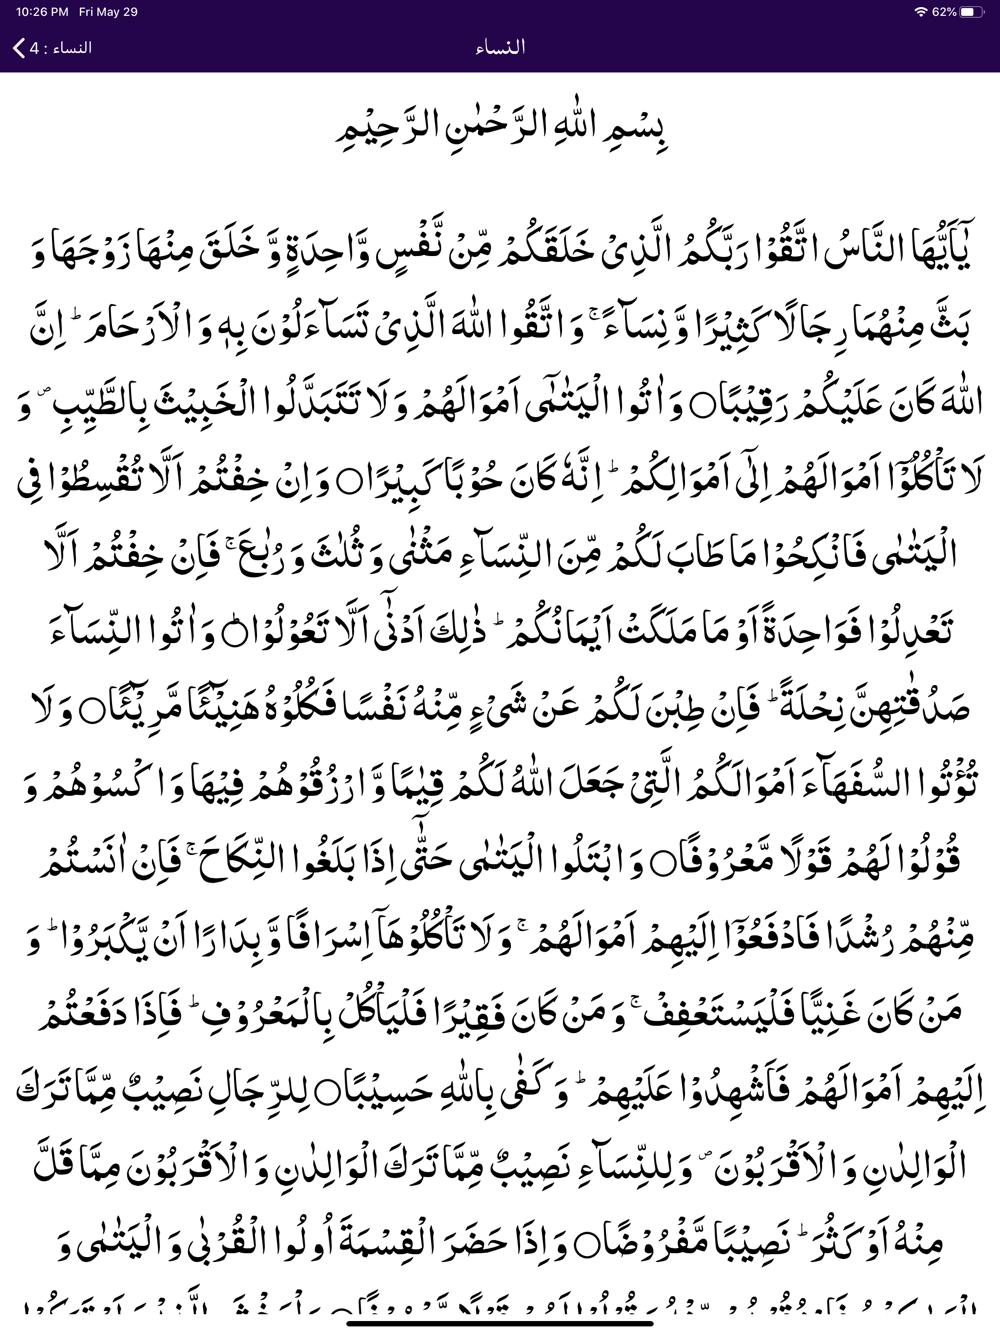 10:26 PM Fri May 29 62%
النساء : 4 النساء
بِسْمِ اللّٰهِ الرَّحْمٰنِ الرَّحِيْمِ
يٰۤاَيُّهَا النَّاسُ اتَّقُوْا رَبَّكُمُ الَّذِىْ خَلَقَكُمْ مِّنْ نَّفْسٍ وَّاحِدَةٍ وَّ خَلَقَ مِنْهَا زَوْجَهَا وَ
بَثَّ مِنْهُمَا رِجَالًا كَثِيْرًا وَّ نِسَآءً ۚ وَ اتَّقُوا اللّٰهَ الَّذِىْ تَسَآءَلُوْنَ بِهٖ وَ الْاَرْحَامَ ؕ اِنَّ
اللّٰهَ كَانَ عَلَيْكُمْ رَقِيْبًا○ وَ اٰتُوا الْيَتٰمٰۤى اَمْوَالَهُمْ وَ لَا تَتَبَدَّلُوا الْخَبِيْثَ بِالطَّيِّبِ ۪ وَ
لَا تَاْكُلُوْۤا اَمْوَالَهُمْ اِلٰۤى اَمْوَالِكُمْ ؕ اِنَّهٗ كَانَ حُوْبًا كَبِيْرًا○ وَ اِنْ خِفْتُمْ اَلَّا تُقْسِطُوْا فِى
الْيَتٰمٰى فَانْكِحُوْا مَا طَابَ لَكُمْ مِّنَ النِّسَآءِ مَثْنٰى وَ ثُلٰثَ وَ رُبٰعَ ۚ فَاِنْ خِفْتُمْ اَلَّا
تَعْدِلُوْا فَوَاحِدَةً اَوْ مَا مَلَكَتْ اَيْمَانُكُمْ ؕ ذٰلِكَ اَدْنٰۤى اَلَّا تَعُوْلُوْا○ؕ وَ اٰتُوا النِّسَآءَ
صَدُقٰتِهِنَّ نِحْلَةً ؕ فَاِنْ طِبْنَ لَكُمْ عَنْ شَىْءٍ مِّنْهُ نَفْسًا فَكُلُوْهُ هَنِيْٓـًٔا مَّرِيْٓـًٔا○ وَ لَا
تُؤْتُوا السُّفَهَآءَ اَمْوَالَكُمُ الَّتِىْ جَعَلَ اللّٰهُ لَكُمْ قِيٰمًا وَّ ارْزُقُوْهُمْ فِيْهَا وَ اكْسُوْهُمْ وَ
قُوْلُوْا لَهُمْ قَوْلًا مَّعْرُوْفًا○ وَ ابْتَلُوا الْيَتٰمٰى حَتّٰۤى اِذَا بَلَغُوا النِّكَاحَ ۚ فَاِنْ اٰنَسْتُمْ
مِّنْهُمْ رُشْدًا فَادْفَعُوْۤا اِلَيْهِمْ اَمْوَالَهُمْ ۚ وَ لَا تَاْكُلُوْهَاۤ اِسْرَافًا وَّ بِدَارًا اَنْ يَّكْبَرُوْا ؕ وَ
مَنْ كَانَ غَنِيًّا فَلْيَسْتَعْفِفْ ۚ وَ مَنْ كَانَ فَقِيْرًا فَلْيَاْكُلْ بِالْمَعْرُوْفِ ؕ فَاِذَا دَفَعْتُمْ
اِلَيْهِمْ اَمْوَالَهُمْ فَاَشْهِدُوْا عَلَيْهِمْ ؕ وَ كَفٰى بِاللّٰهِ حَسِيْبًا○ لِلرِّجَالِ نَصِيْبٌ مِّمَّا تَرَكَ
الْوَالِدٰنِ وَ الْاَقْرَبُوْنَ ۪ وَ لِلنِّسَآءِ نَصِيْبٌ مِّمَّا تَرَكَ الْوَالِدٰنِ وَ الْاَقْرَبُوْنَ مِمَّا قَلَّ
مِنْهُ اَوْ كَثُرَ ؕ نَصِيْبًا مَّفْرُوْضًا○ وَ اِذَا حَضَرَ الْقِسْمَةَ اُولُوا الْقُرْبٰى وَ الْيَتٰمٰى وَ